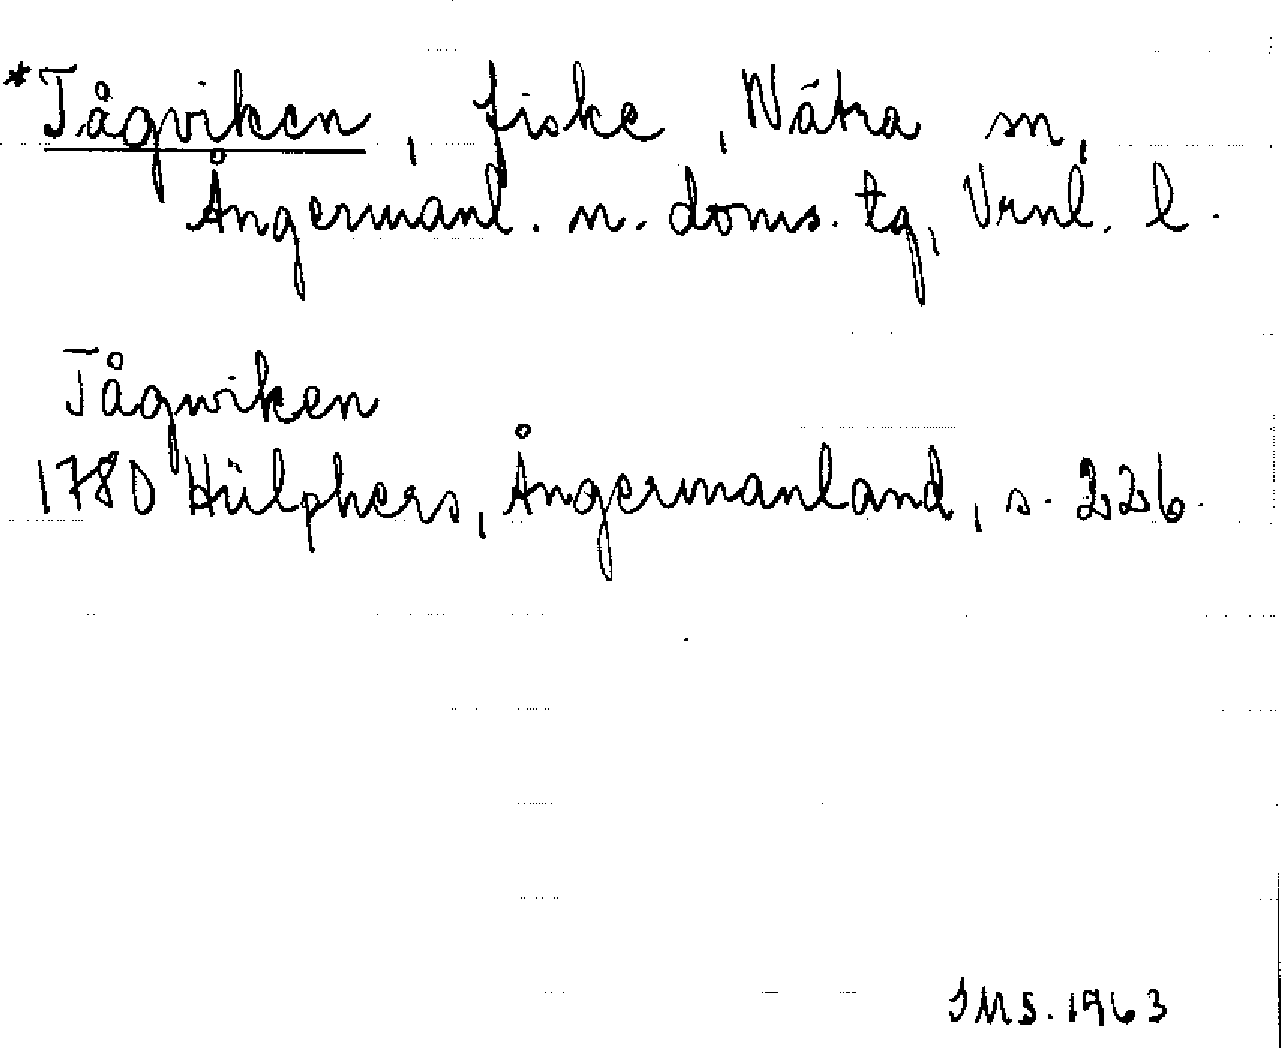 *Tågviken, fiske, Nätra sn,
Ångermanl. n. doms. tg, Vrnl. l.
Tågwiken
1780 Hülphers, Ångermanland, s. 226.
IMS. 1963